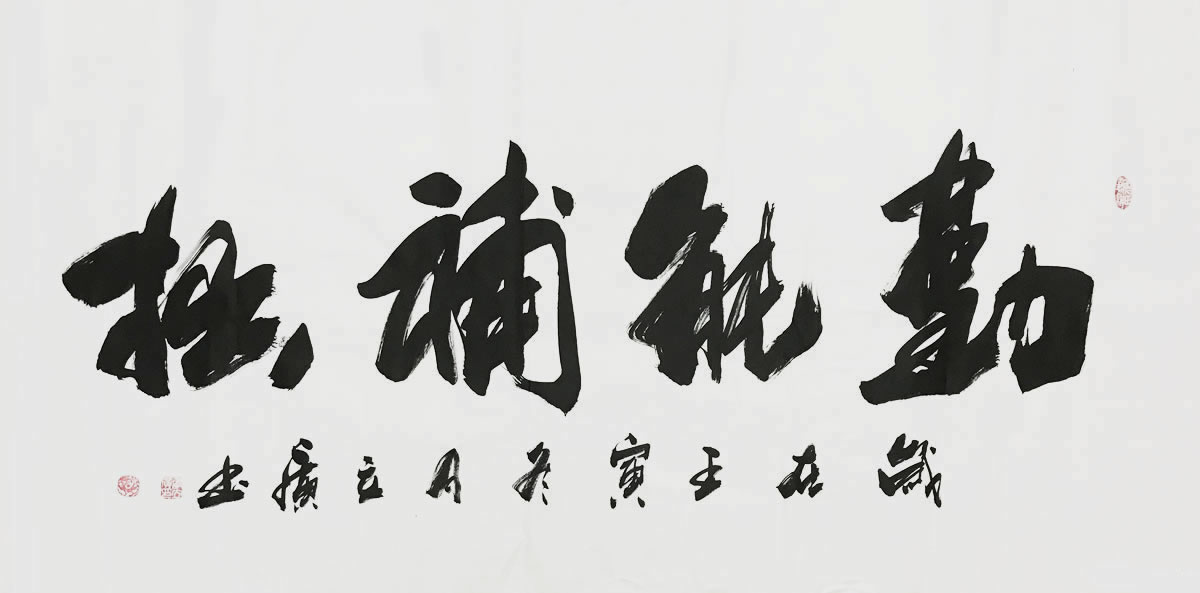 勤能補拙
歲在壬寅冬月立廣书